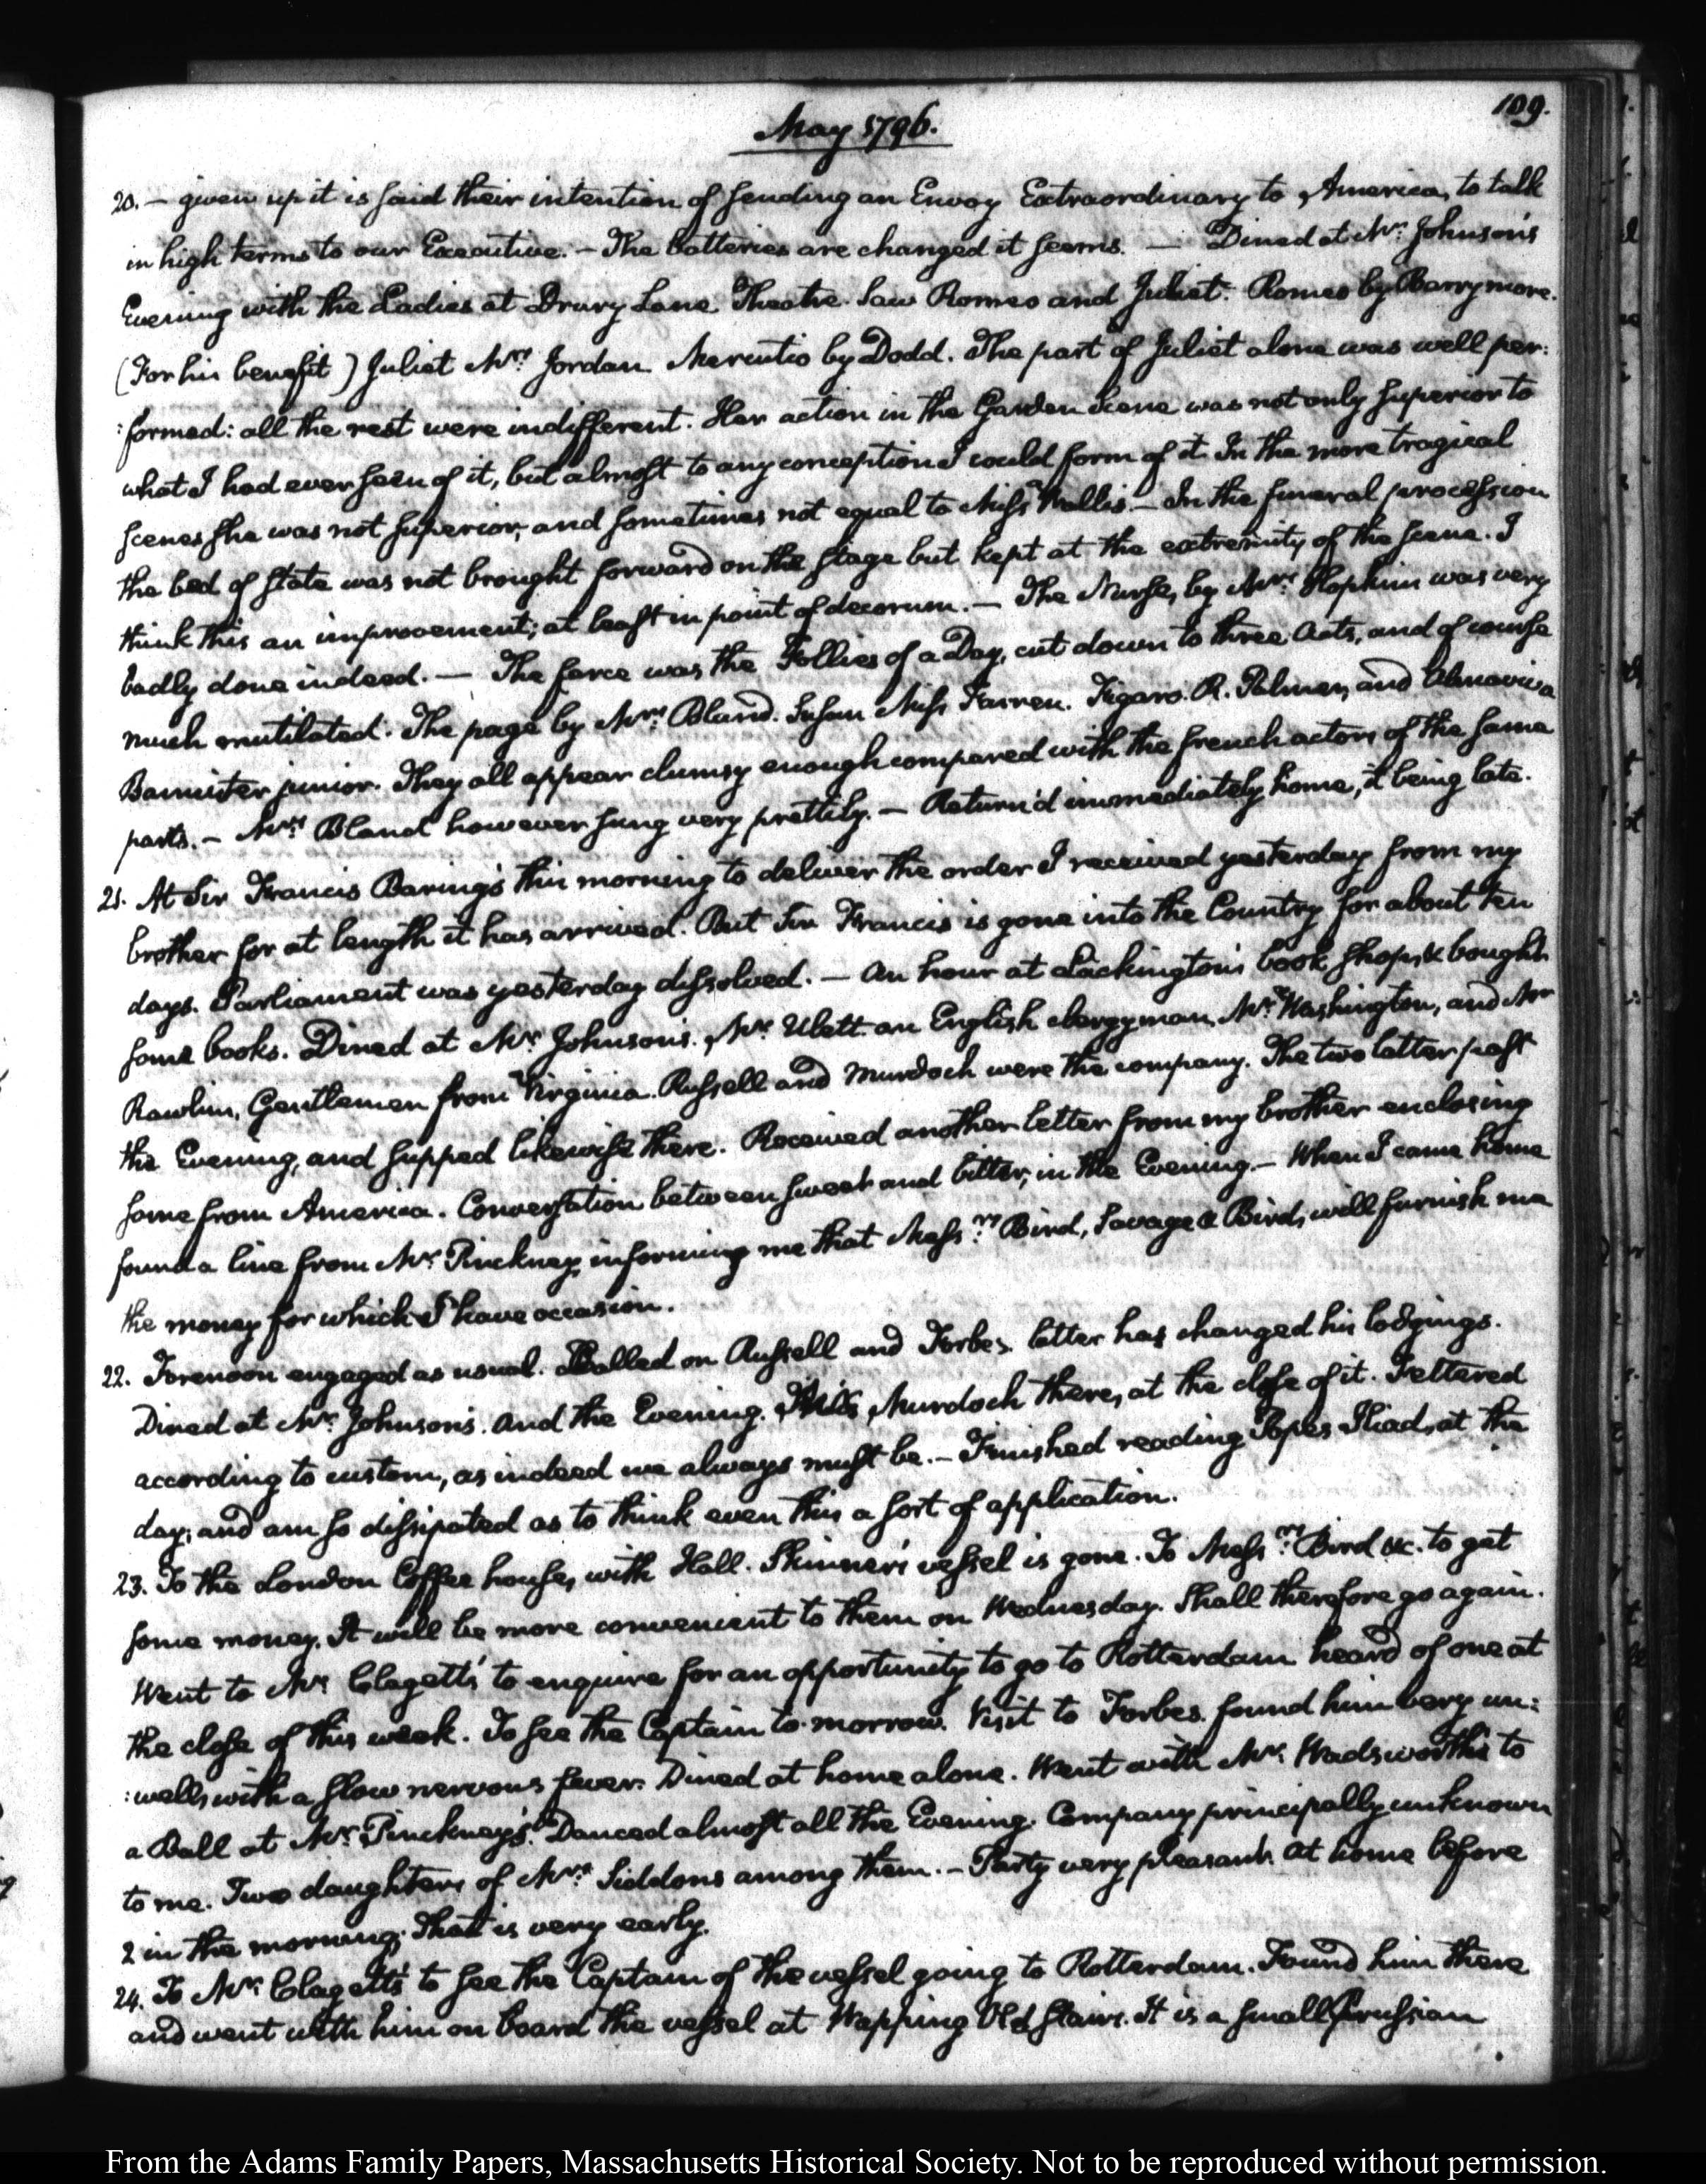 109.
May 1796.
20. — given up it is said their intention of sending an Envoy Extraordinary to America, to talk
in high terms to our Executive. — The batteries are changed it seems. — Dined at Mr: Johnson's
Evening with the Ladies at Drury Lane Theatre. Saw Romeo and Juliet. Romeo by Barrymore.
(For his benefit) Juliet Mrs: Jordan Mercutio by Dodd. The part of Juliet alone was well per:
:formed: all the rest were indifferent. Her action in the Garden Scene was not only superior to
what I had ever seen of it, but almost to any conception I could form of it. In the more tragical
scenes she was not superior, and sometimes not equal to Miss Wallis. — In the funeral procession
the bed of state was not brought forward on the stage but kept at the extremity of the scene. I
think this an improvement; at least in point of decorum. — The Nurse, by Mrs: Hopkins was very
badly done indeed. — The farce was the Follies of a Day, cut down to three acts, and of course
much mutilated. The page by Mrs: Bland. Susan Miss Farren. Figaro. R. Palmer, and Almaviva
Bannister junior. They all appear clumsy enough compared with the french actors of the same
parts. — Mrs: Bland however sung very prettily. — Return'd immediately home, it being late.
21. At Sir Francis Baring's this morning to deliver the order I received yesterday from my
brother for at length it has arrived. But Sir Francis is gone into the Country for about ten
days. Parliament was yesterday dissolved. — An hour at Lackington's book shop, & bought
some books. Dined at Mr: Johnson's. Mr: Ulett an English clergyman, Mr: Washington, and Mr
Rawlins, Gentlemen from Virginia. Russell and Murdoch were the company. The two latter past
the Evening, and supped likewise there. Received another letter from my brother enclosing
some from America. Conversation between sweet and bitter, in the Evening. — When I came home
found a line from Mr: Pinckney, informing me that Mess:rs Bird, Savage & Bird, will furnish me
the money for which I have occasion.
22. Forenoon engaged as usual. Called on Russell and Forbes. latter has changed his lodgings.
Dined at Mr: Johnson's. and the Evening. Murdoch there, at the close of it. Fettered
according to custom, as indeed we always must be. — Finished reading Popes Iliad, at the
day; and am so dissipated as to think even this a sort of application.
23. To the London Coffee house, with Hall. Skinner's vessel is gone. To Mess:rs Bird &c. to get
some money. It will be more convenient to them on Wednesday. Shall therefore go again.
Went to Mr: Clagett's to enquire for an opportunity to go to Rotterdam heard of one at
the close of this week. To see the Captain to-morrow. Visit to Forbes. found him very un:
:well, with a slow nervous fever. Dined at home alone. Went with Mr: Wadsworth's to
a Ball at Mr: Pinckney's. Danced almost all the Evening. Company principally unknown
to me. Two daughters of Mrs: Siddons among them. — Party very pleasant. At home before
2 in the morning; That is very early.
24. To Mr: Clagett's to see the Captain of the vessel going to Rotterdam. Found him there
and went with him on board the vessel at Wapping Old Stairs. It is a small Prussian
From the Adams Family Papers, Massachusetts Historical Society. Not to be reproduced without permission.